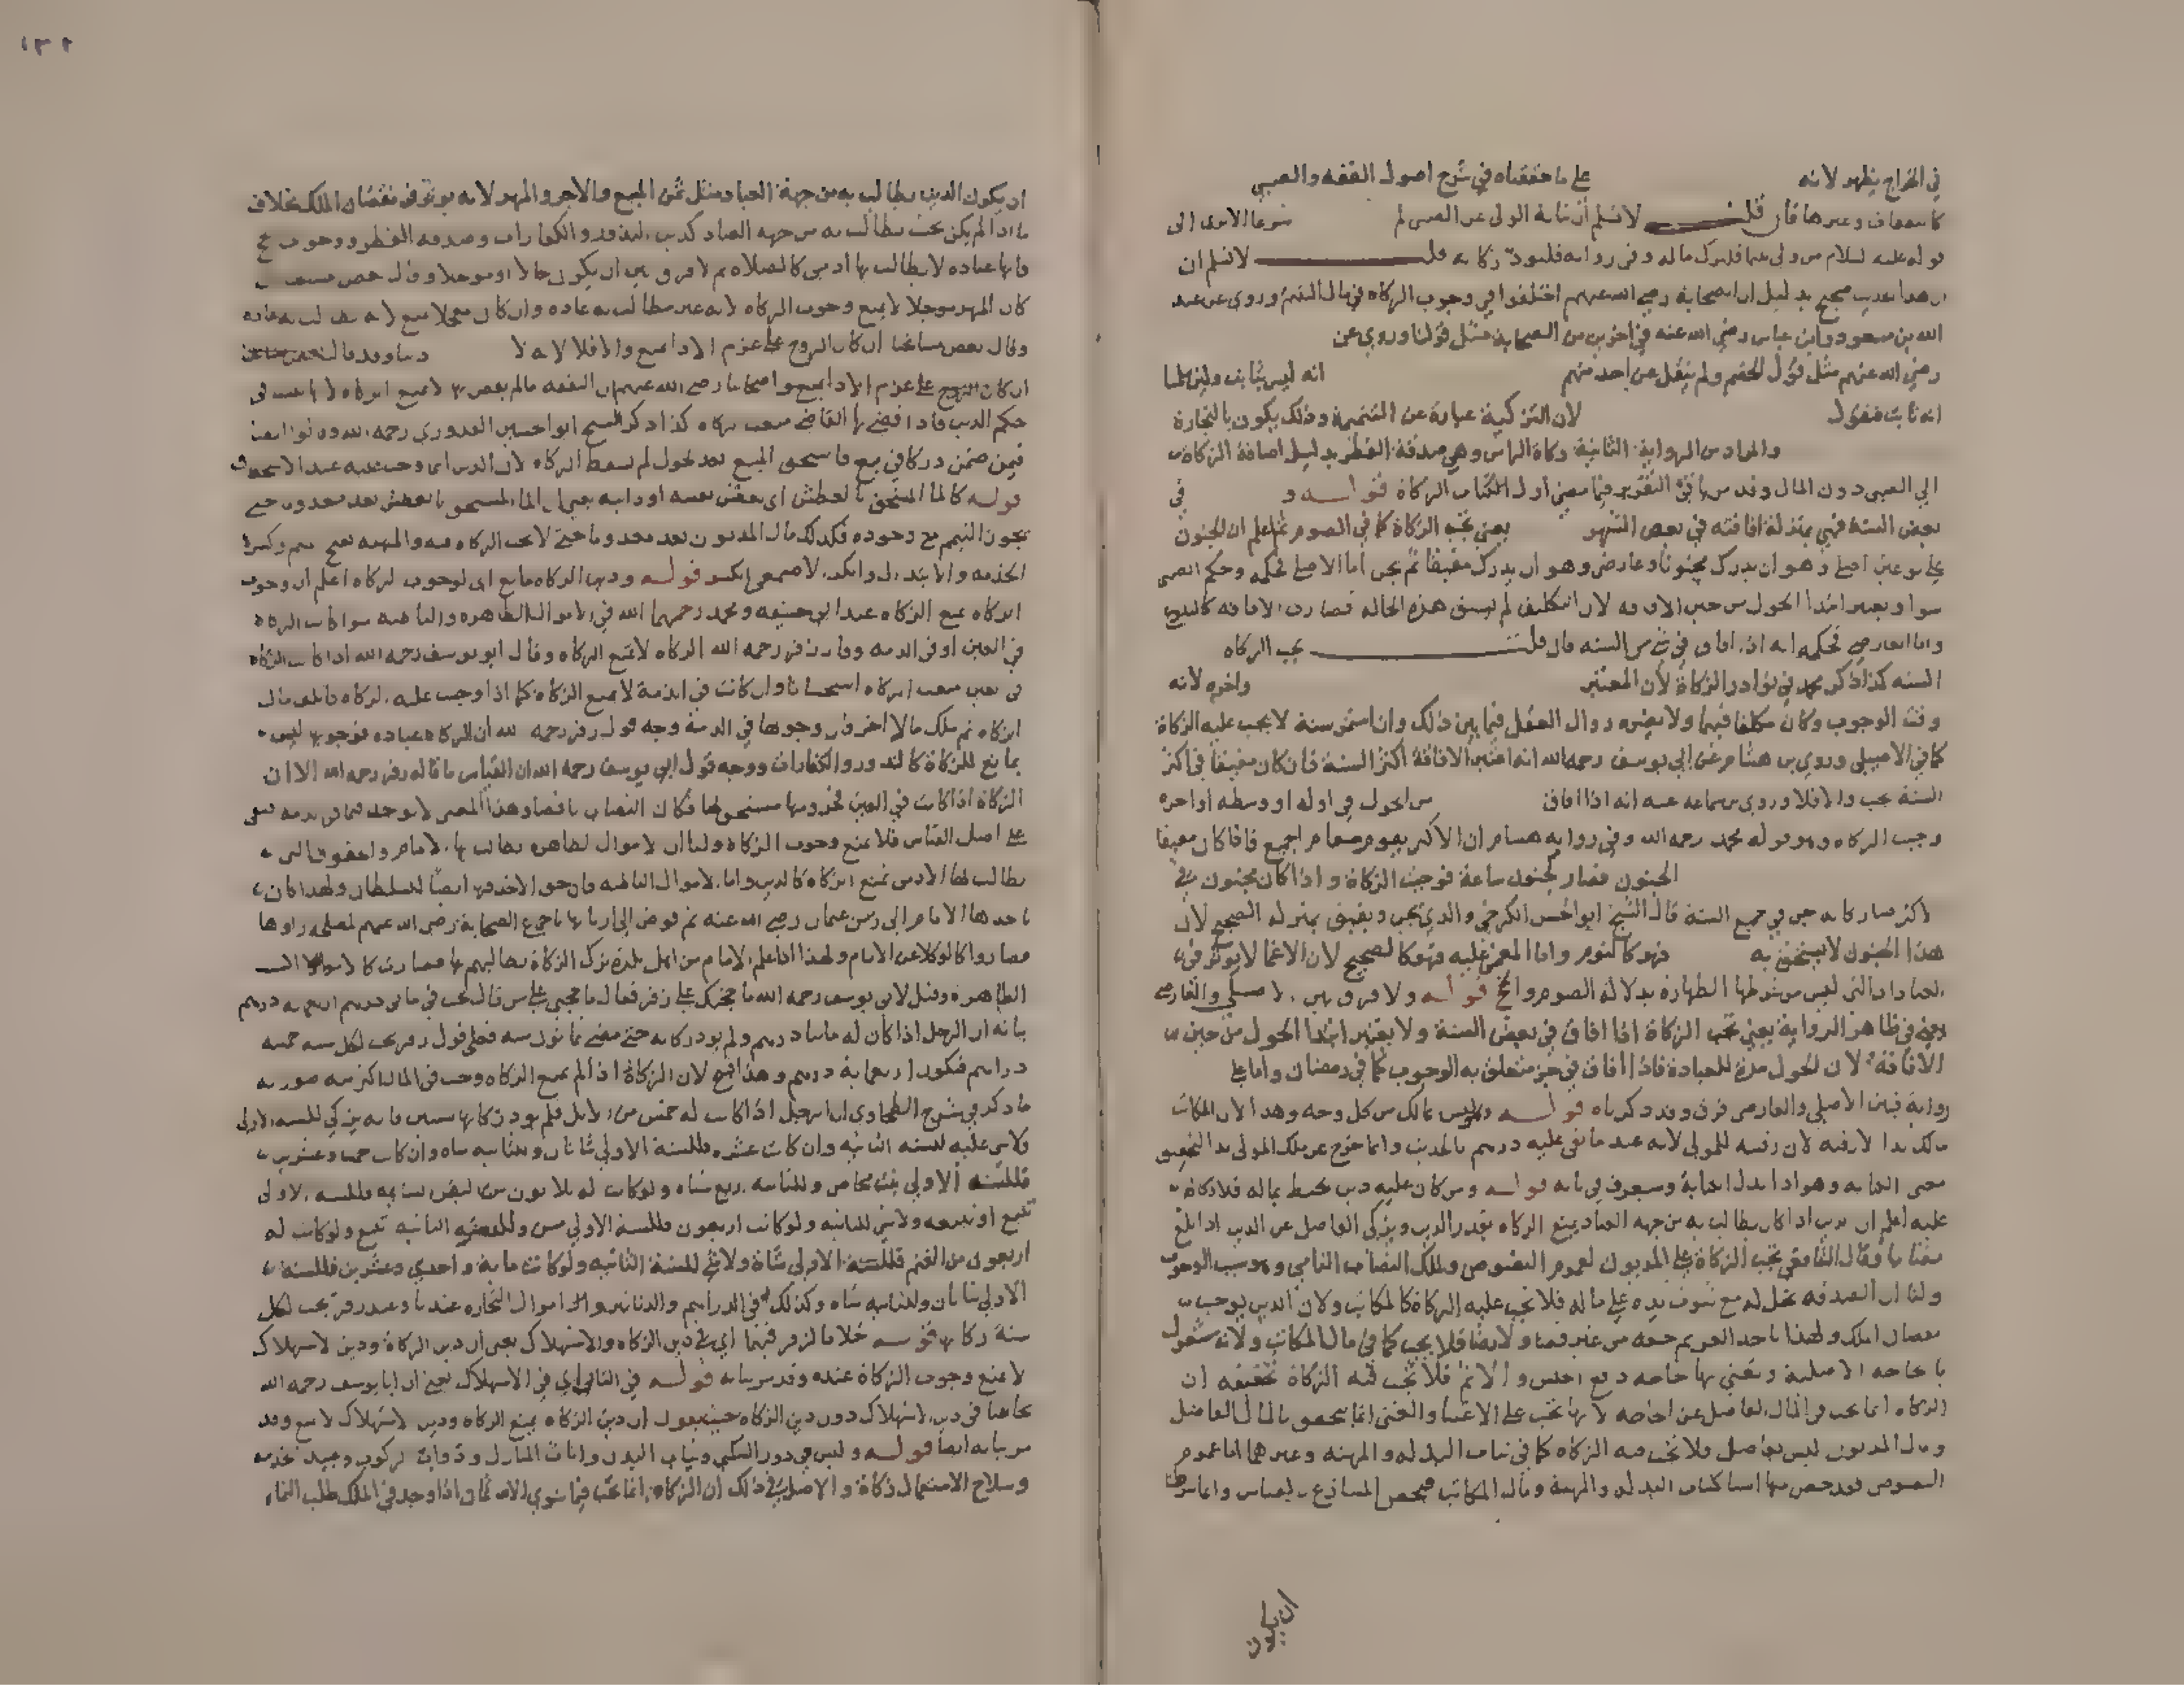 في الخراج يظهر لانه على ما حققناه في شرح اصول الفقه والصبي
وغيرها فان قلت لا نسلم ان نيابة الولي عن الصبي لم
قوله عليه السلام من ولي يتيما فليزك ماله وفي رواية فليؤد زكاته قلت لا نسلم ان
هذا الحديث صحيح بدليل ان الصحابة رضي الله عنهم اختلفوا في وجوب الزكاة في مال اليتيم وروي عن عبد
الله بن مسعود وابن عباس رضي الله عنه في اخرين من الصحابة مثل قولنا وروي عن
رضي الله عنهم مثل قول الخصم ولم ينقل عن احد منهم انه ليس بثابت ولئن سلمنا
انه ثابت فنقول لان التزكية عبارة عن التنمية وذلك يكون بالتجارة
والمراد من الرواية الثانية زكاة الراس وهي صدقة الفطر بدليل اضافة الزكاة
الى الصبي دون المال وقد مر باقي التقرير فيما مضى اول الكتاب الزكاة قوله و في
بعض السنة فهي بمنزلة افاقته في بعض الشهر يعني تجب الزكاة كما في الصوم ثم اعلم ان الجنون
على نوعين اصلي وهو ان يدرك مجنونا وعارض وهو ان يدرك مفيقا ثم يجن اما الاصلي فحكمه وحكم الصبي
سواء ويعتبر ابتداء الحول من حين الافاقة لان التكليف لم يسبق هذه الحالة فصارت الافاقة كالبلوغ
واما العارضي فحكمه انه اذا افاق في شيء من السنة فان قلت تجب الزكاة
السنة كذا ذكر محمد في نوادر الزكاة لان المعتبر واخره لانه
وقت الوجوب وكان مكلفا فيهما ولا يعتبر زوال العقل فيما بين ذلك وان استمر سنة لا يجب عليه الزكاة
كما في الاصلي وروي بن هشام عن ابي يوسف رحمه الله انه اعتبر الافاقة اكثر السنة فان كان مفيقا في اكثر
السنة يجب والا فلا وروي بن سماعة عنه انه اذا افاق من الحول في اوله او وسطه او اخره
وجب الزكاة وهو قوله محمد رحمه الله وفي رواية هشام ان الاكثر يقوم مقام الجميع فاذا كان مفيقا
الجنون فصار كجنون ساعة فوجبت الزكاة واذا كان مجنون في
الاكثر صار كانه جن في جميع السنة قال الشيخ ابو الحسن الكرخي والذي يجن ويفيق بمنزلة الصحيح لان
هذا الجنون لا يستحق به فهو كالنوم واما المغمى عليه فهو كالصحيح لان الاغما لا يؤثر في
العبادات التي ليس من شرطها الطهارة بدلالة الصوم والحج قوله ولا فرق بين الاصلي والعارضي
يعني في ظاهر الرواية يعني تجب الزكاة اذا افاق في بعض السنة ولا يعتبر ابتداء الحول من حين
الافاقة لان الحول مدة للعبادة فاذا افاق في جزء منه تعلق به الوجوب كما في رمضان واما على
رواية فبين الاصلي والعارضي فرق وقد ذكرناه قوله وليس بمالك من كل وجه وهذا لان المكاتب
مالك يدا لا رقبة لان رقبته للمولى لانه عبد ما بقي عليه درهم بالحديث وانما خرج عن ملك المولى يدا لتحقيق
معنى الكتابة وهو اداء بدل الكتابة وسيعرف في بابه قوله ومن كان عليه دين محيط بماله فلا زكاة
عليه اعلم ان الدين اذا كان يطالب به من جهة العباد يمنع الزكاة بقدر الدين ويزكي الفاضل عن الدين اذا بلغ
نصابا وقال الشافعي تجب الزكاة على المديون لعموم النصوص وملك النصاب النامي وهو سبب الوجوب
ولنا ان الصدقة تحل له مع ثبوت يده على ماله فلا تجب عليه الزكاة كالمكاتب ولان الدين يوجب
نقصان الملك ولهذا ياخذ الغريم حقه من غير قضاء ولا رضا فلا يجب كما في مال المكاتب ولانه مشغول
بالحاجة الاصلية ونعني بها حاجة دفع الحبس والاثم فلا تجب فيه الزكاة تحقيقه ان
الزكاة انما تجب في المال الفاضل عن الحاجة لانها تجب على الاغنياء والغنى انما يتحقق بالمال الفاضل
ومال المديون ليس بفاضل فلا تجب فيه الزكاة كما في ثياب البذلة والمهنة وغيرهما اما عموم
النصوص فقد خص منها اشياء كثياب البذلة والمهنة ومال المكاتب فيخص المتنازع بالقياس وانما شرطنا
ان يكون
١٣٢
ان يكون الدين يطالب به من جهة العباد مثل ثمن المبيع والاجر والمهر لانه يؤثر في نقصان الملك بخلاف
ما اذا لم يكن بحيث يطالب به من جهة العباد كدين النذور والكفارات وصدقة الفطر ووجوب حج
فانها عبادة لا يطالب بها ادمي كالصلاة ثم لا فرق بين ان يكون حالا او مؤجلا وقال بعض مشايخنا
كان المهر مؤجلا لا يمنع وجوب الزكاة لانه غير مطالب به عادة وان كان معجلا يمنع لانه يطالب به عادة
وقال بعض مشايخنا ان كان الزوج على عزم الاداء يمنع والا فلا لانه لا دينا
ان كان الزوج على عزم الاداء يمنع واصحابنا رضي الله عنهم ان النفقة ما لم يقض بها لا تمنع الزكاة لانها ليست في
حكم الدين فاذا قضى بها القاضي منعت الزكاة كذا ذكر الشيخ ابو الحسين القدوري رحمه الله وقالوا ايضا
فيمن ضمن دركا في بيع فاستحق المبيع بعد الحول لم تسقط الزكاة لان الدين انما وجب عليه عند الاستحقاق
قوله كالماء المستحق بالعطش اي بعطش نفسه او دابته يعني ان الماء المستحق بالعطش يعد معدوما حتى
يجوز التيمم مع وجوده فكذلك مال المديون يعد معدوما حتى لا تجب الزكاة فيه والمهنة بفتح الميم وكسرها
الخدمة والابتذال وانكر الاصمعي الكسر قوله ودين الزكاة مانع اي لوجوب الزكاة اعلم ان وجوب
الزكاة يمنع الزكاة عند ابي حنيفة ومحمد رحمهما الله في الاموال الظاهرة والباطنة سواء كانت الزكاة
في العين او في الذمة وقال زفر رحمه الله الزكاة لا تمنع الزكاة وقال ابو يوسف رحمه الله اذا كانت الزكاة
في العين منعت الزكاة استحسانا وان كانت في الذمة لا تمنع الزكاة كما اذا وجبت عليه الزكاة فاتلف مال
الزكاة ثم ملك مالا اخر فان وجوبها في الذمة وجه قول زفر رحمه الله ان الزكاة عبادة فوجوبها ليس
بمانع للزكاة كالنذور والكفارات ووجه قول ابي يوسف رحمه الله ان القياس ما قاله زفر رحمه الله الا ان
الزكاة اذا كانت في العين فجزء منها مستحق لها فكان النصاب ناقصا وهذا المعنى لا يوجد فيما في ذمته فبقي
على اصل القياس فلا يمنع وجوب الزكاة ولنا ان الاموال الظاهرة يطالب بها الامام والحقوق التي
يطالب لها الادمي تمنع الزكاة كالدين واما الاموال الباطنة فان حق الاخذ فيها ايضا للسلطان ولهذا كان
ياخذها الامام الى زمن عثمان رضي الله عنه ثم فوض الى اربابها باجماع الصحابة رضي الله عنهم لمصلحة راوها
فصاروا كالوكلاء عن الامام ولهذا اذا علم الامام من اهل بلدة ترك الزكاة يطالبهم بها فصارت كالاموال
الظاهرة وقيل لابي يوسف رحمه الله ما حجتك على زفر فقال ما حجتي على من قال تجب في مائتي درهم اربعمائة درهم
بيانه ان الرجل اذا كان له مائتا درهم ولم يؤد زكاته حتى مضى ثمانون سنة فعلى قول زفر يجب لكل سنة خمسة
دراهم فيكون اربعمائة درهم وهذا قبيح لان الزكاة اذا لم تمنع الزكاة وجب في المال اكثر منه صورته
ما ذكر في شرح الطحاوي ان الرجل اذا كانت له خمس من الابل فلم يؤد زكاتها سنتين فانه يزكي للسنة الاولى
ولا شيء عليه للسنة الثانية وان كانت عشرة فللسنة الاولى شاتان وللثانية شاة وان كانت خمسا وعشرين
فللسنة الاولى بنت مخاض وللثانية اربع شياه ولو كانت له ثلاثون من البقر سائمة فللسنة الاولى
تبيع او تبيعة ولا شيء للثانية ولو كانت اربعون فللسنة الاولى مسن وللسنة الثانية تبيع ولو كانت له
اربعون من الغنم فللسنة الاولى شاة ولا شيء للسنة الثانية ولو كانت مائة واحدى وعشرين فللسنة
الاولى شاتان وللثانية شاة وكذلك في الدراهم والدنانير واموال التجارة عندنا وعند زفر تجب لكل
سنة زكاتها قوله خلافا لزفر فيهما اي في دين الزكاة والاستهلاك يعني ان دين الزكاة ودين الاستهلاك
لا يمنع وجوب الزكاة عنده وقد مر بيانه قوله في الثاني اي في الاستهلاك يعني ان ابا يوسف رحمه الله
خالفنا في دين الاستهلاك دون دين الزكاة حيث يقول ان دين الزكاة يمنع الزكاة ودين الاستهلاك لا يمنع وقد
مر بيانه ايضا قوله وليس في دور السكنى وثياب البدن واثاث المنازل ودواب الركوب وعبيد الخدمة
وسلاح الاستعمال زكاة والاصل في ذلك ان الزكاة انما تجب فيما نوي الانماء واذا وجد في الملك طلب النماء